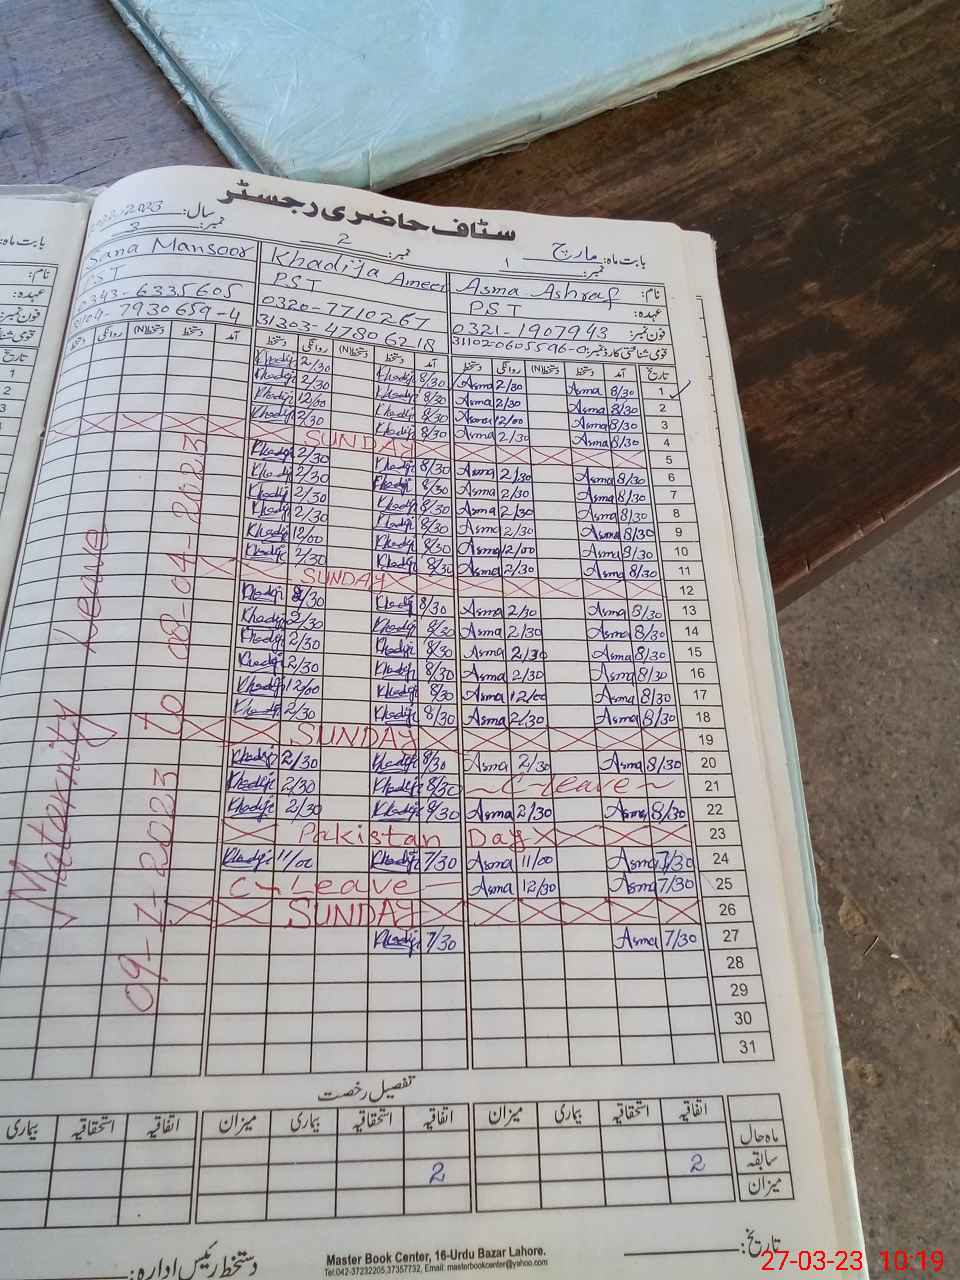 سٹاف حاضری رجسٹر
بابت ماہ: مارچ سال: 2023
نمبر: 1 نمبر: 2 نمبر: 3
نام: Asma Ashraf Khadija Ameer Sana Mansoor
عہدہ: PST PST PST
فون نمبر: 0321-1907943 0320-7710267 0343-6335605
قومی شناختی کارڈ نمبر: 311020605596-0 31303-47806218 7930659-4
تاریخ آمد دستخط دستخط(N) روانگی دستخط آمد دستخط دستخط(N) روانگی دستخط آمد دستخط دستخط(N) روانگی دستخط
1 8/30 Asma 2/30 Asma 8/30 Khadija 2/30 Khadija
2 8/30 Asma 2/30 Asma 8/30 Khadija 2/30 Khadija
3 8/30 Asma 12/00 Asma 8/30 Khadija 12/00 Khadija
4 8/30 Asma 2/30 Asma 8/30 Khadija 2/30 Khadija
5 SUNDAY
6 8/30 Asma 2/30 Asma 8/30 Khadija 2/30 Khadija
7 8/30 Asma 2/30 Asma 8/30 Khadija 2/30 Khadija
8 8/30 Asma 2/30 Asma 8/30 Khadija 2/30 Khadija
9 8/30 Asma 2/30 Asma 8/30 Khadija 2/30 Khadija
10 8/30 Asma 12/00 Asma 8/30 Khadija 12/00 Khadija
11 8/30 Asma 2/30 Asma 8/30 Khadija 2/30 Khadija
12 SUNDAY
13 8/30 Asma 2/30 Asma 8/30 Khadija 2/30 Khadija
14 8/30 Asma 2/30 Asma 8/30 Khadija 2/30 Khadija
15 8/30 Asma 2/30 Asma 8/30 Khadija 2/30 Khadija
16 8/30 Asma 2/30 Asma 8/30 Khadija 2/30 Khadija
17 8/30 Asma 12/00 Asma 8/30 Khadija 12/00 Khadija
18 8/30 Asma 2/30 Asma 8/30 Khadija 2/30 Khadija
19 SUNDAY
20 8/30 Asma 2/30 Asma 8/30 Khadija 2/30 Khadija
21 C-leave 8/30 Khadija 2/30 Khadija
22 8/30 Asma 2/30 Asma 8/30 Khadija 2/30 Khadija
23 Pakistan Day
24 7/30 Asma 11/00 Asma 7/30 Khadija 11/00 Khadija
25 7/30 Asma 12/30 Asma C-Leave
26 SUNDAY
27 7/30 Asma 7/30 Khadija
28
29
30
31
Matarnity Leave
09-1-2023 to 08-04-2023
تفصیل رخصت
اتفاقیہ استحقاقیہ بیماری میزان اتفاقیہ استحقاقیہ بیماری میزان اتفاقیہ استحقاقیہ بیماری
ماہ حال
سابقہ 2 2
میزان
تاریخ: دستخط رئیس ادارہ:
Master Book Center, 16-Urdu Bazar Lahore.
Tel:042-37232205,37357732, Email: masterbookcenter@yahoo.com
27-03-23 10:19